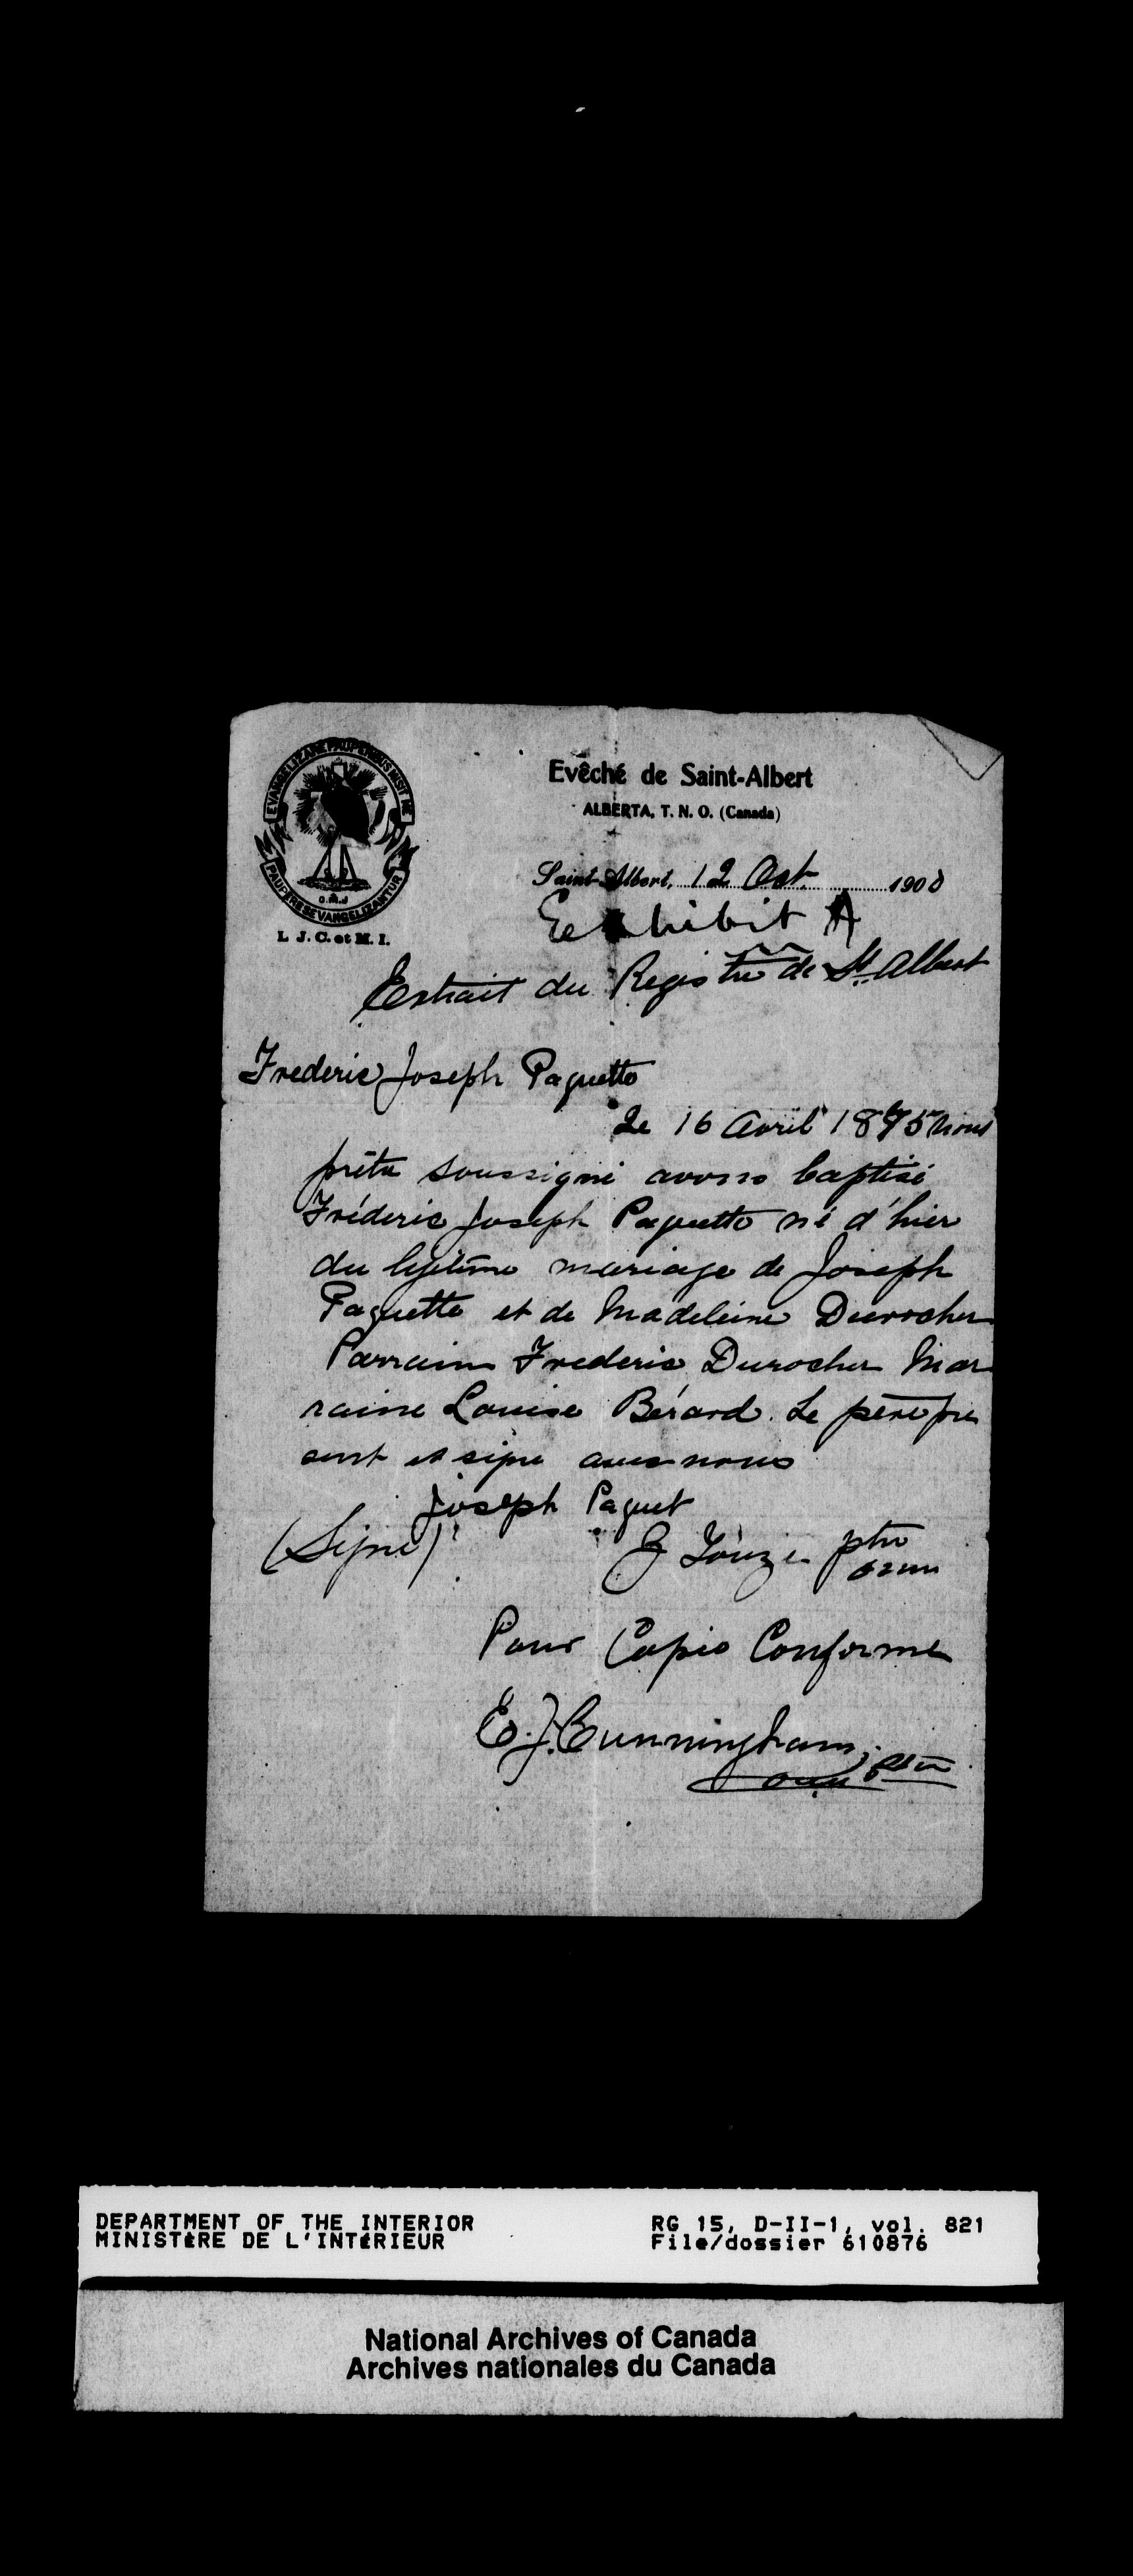 EVANGELIZARE PAUPERIBUS MISIT ME
PAUPERES EVANGELIZANTUR
O.M.J
L. J. C. et M. I.
Evêché de Saint-Albert
ALBERTA, T. N. O. (Canada)
Saint-Albert, 12 Oct. 1900
Exhibit A
Extrait du Registre de St. Albert
Frederic Joseph Paquette
Le 16 Avril 1875 nous
prêtre soussigné avons baptisé
Fréderic Joseph Paquette né d'hier
du legitime mariage de Joseph
Paquette et de Madeleine Durocher
Parrain Frederic Durocher Mar
raine Louise Bérard. Le père pré
sent et signe avec nous
Joseph Paquet
(Signé) ptre
Pour Copie Conforme
E. J. Cunningham ptre
omi
DEPARTMENT OF THE INTERIOR
MINISTÈRE DE L'INTÉRIEUR
RG 15, D-II-1, vol. 821
File/dossier 610876
National Archives of Canada
Archives nationales du Canada